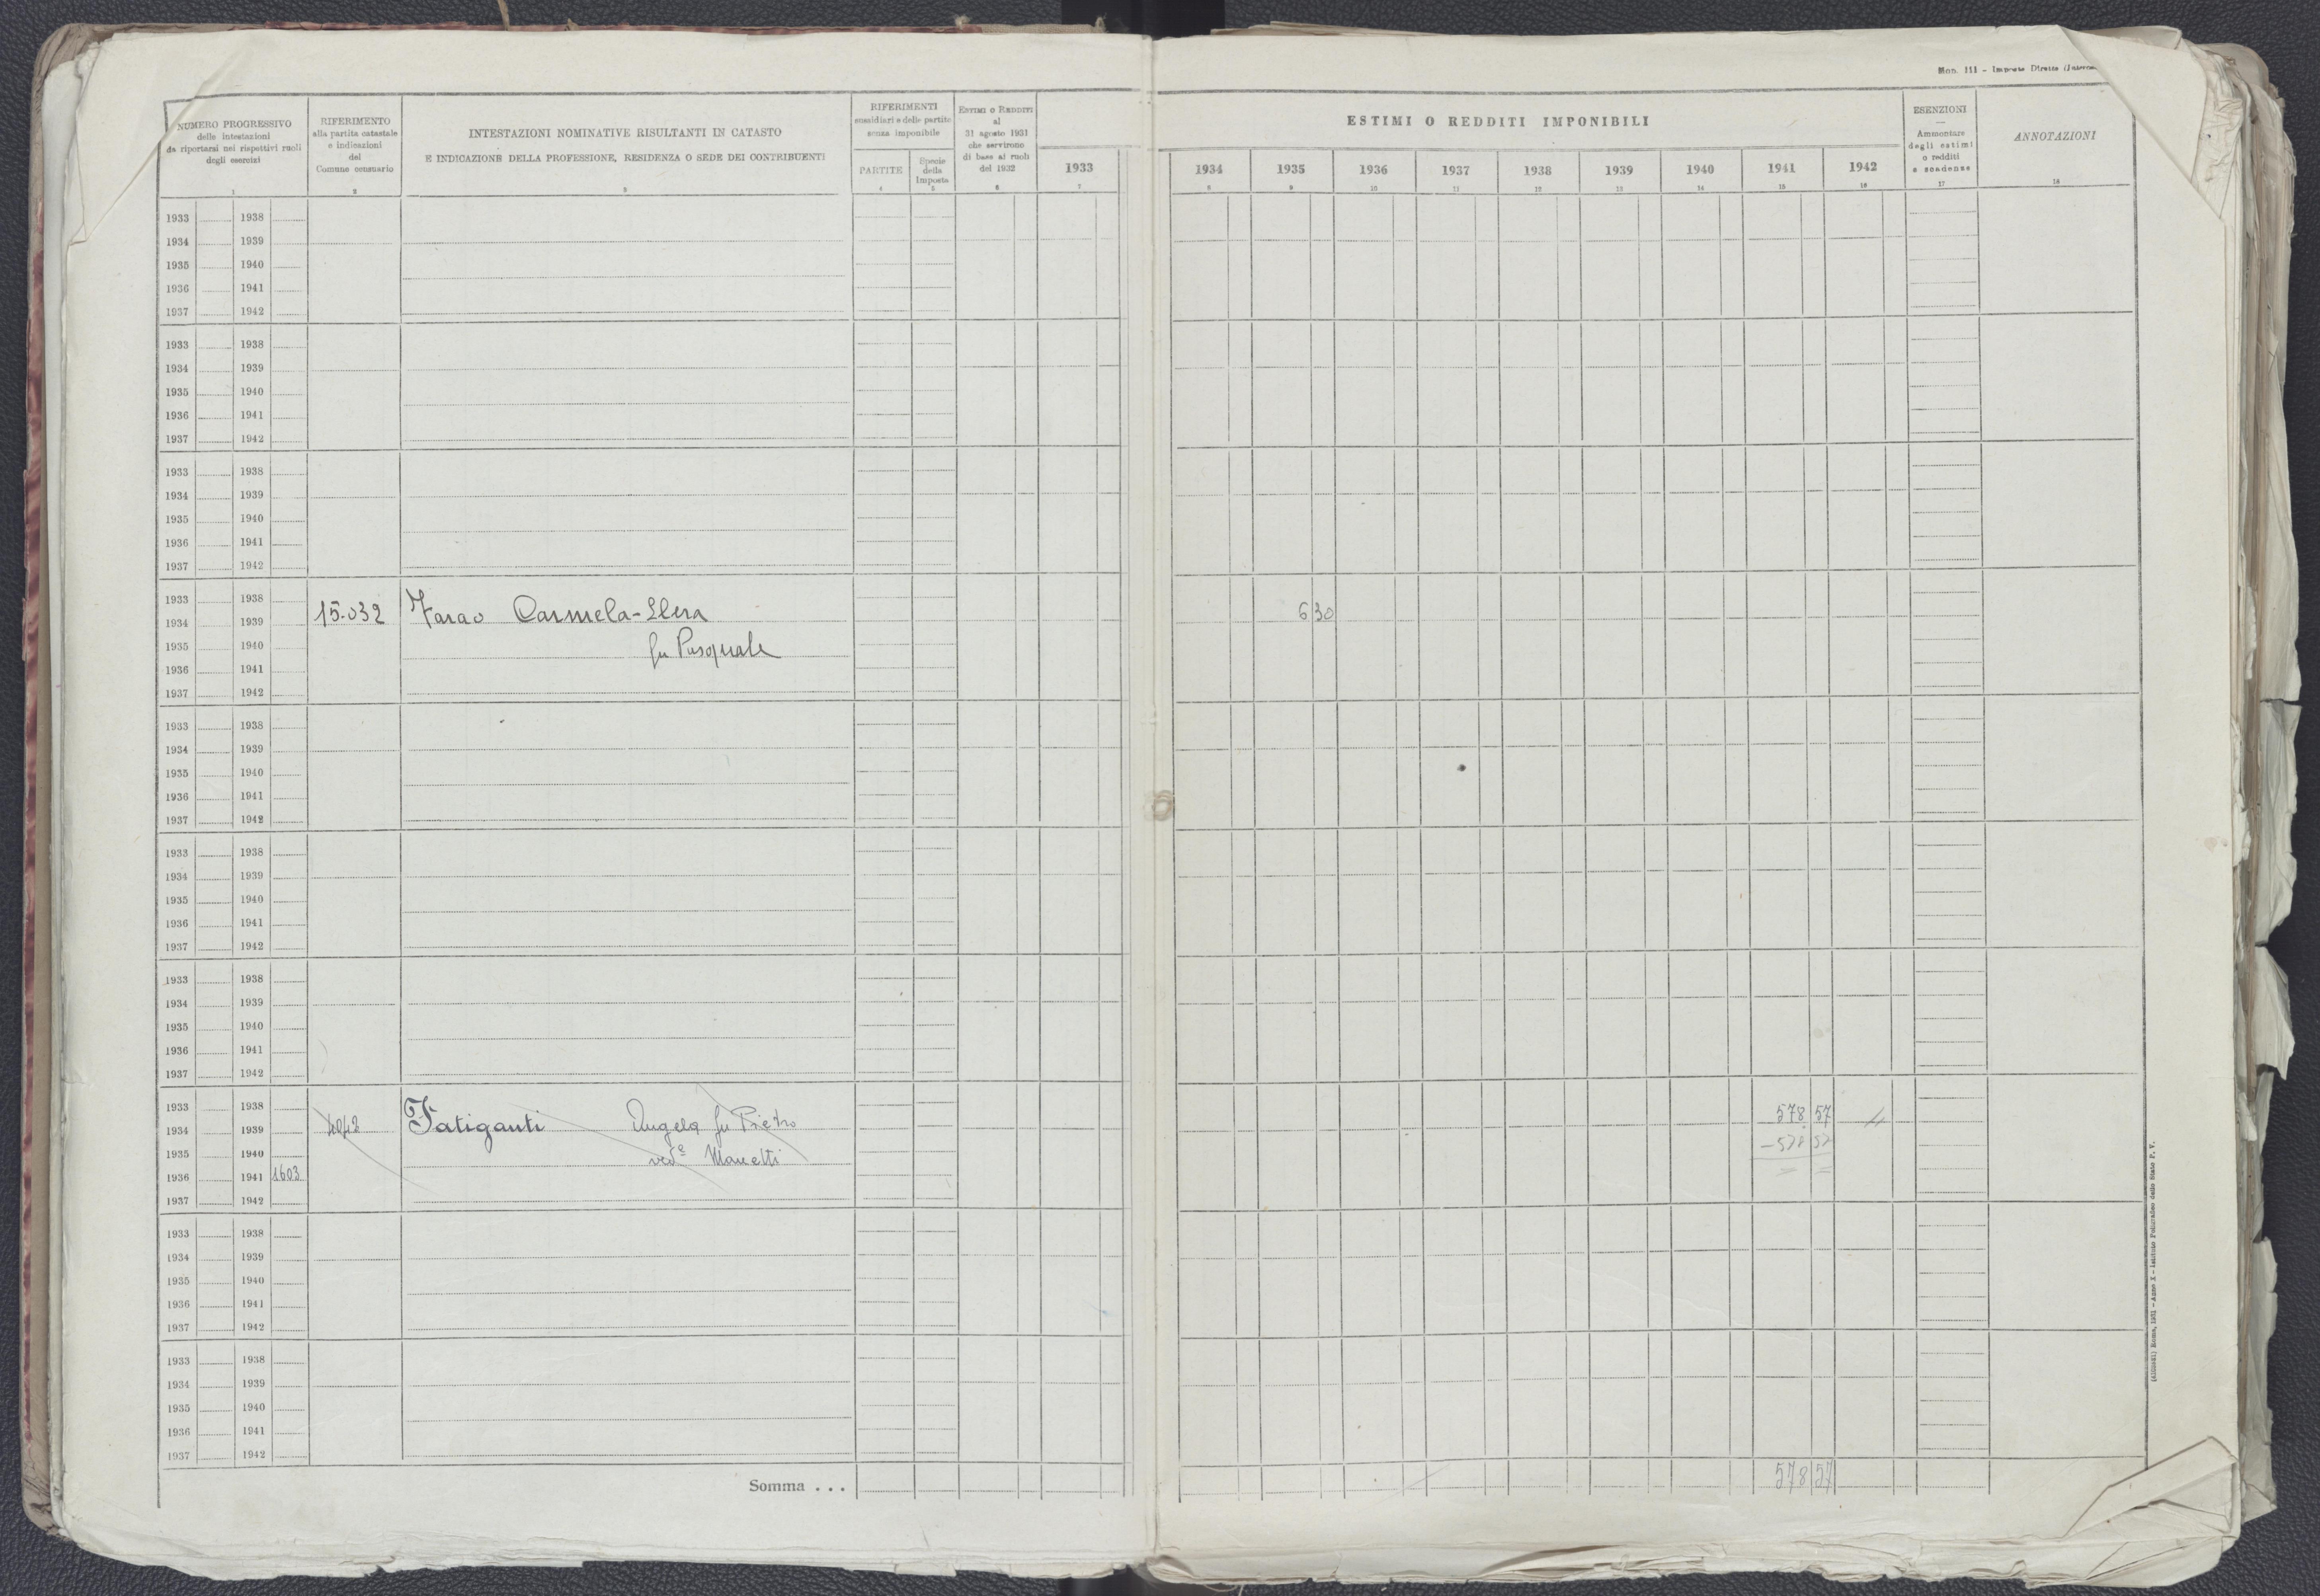 Mod. 111 - Imposte Dirette
NUMERO PROGRESSIVO
delle intestazioni
da riportarsi nei rispettivi ruoli
degli esercizi
1
RIFERIMENTO
alla partita catastale
e indicazioni
del
Comune censuario
2
INTESTAZIONI NOMINATIVE RISULTANTI IN CATASTO
E INDICAZIONE DELLA PROFESSIONE, RESIDENZA O SEDE DEI CONTRIBUENTI
3
RIFERIMENTI
sussidiari e delle partite
senza imponibile
PARTITE
4
Specie
della
Imposta
5
ESTIMI O REDDITI
al
31 agosto 1931
che servirono
di base ai ruoli
del 1932
6
1933
7
ESTIMI O REDDITI IMPONIBILI
1934 1935 1936 1937 1938 1939 1940 1941 1942
8 9 10 11 12 13 14 15 16
ESENZIONI
—
Ammontare
degli estimi
o redditi
e scadenze
17
ANNOTAZIONI
18
1933 1938
1934 1939
1935 1940
1936 1941
1937 1942
1933 1938
1934 1939
1935 1940
1936 1941
1937 1942
1933 1938
1934 1939
1935 1940
1936 1941
1937 1942
1933 1938
1934 1939 15.032 Farao Carmela- 6 30
1935 1940 fu Pasquale
1936 1941
1937 1942
1933 1938
1934 1939
1935 1940
1936 1941
1937 1942
1933 1938
1934 1939
1935 1940
1936 1941
1937 1942
1933 1938
1934 1939
1935 1940
1936 1941
1937 1942
1933 1938 578 57
1934 1939 Fatiganti Angela fu Pietro
1935 1940 ved. Manetti -578 57
1936 1941 1603
1937 1942
1933 1938
1934 1939
1935 1940
1936 1941
1937 1942
1933 1938
1934 1939
1935 1940
1936 1941
1937 1942
Somma . . . 578 57
Roma, 1931 - Anno X - Istituto Poligrafico dello Stato P. V.